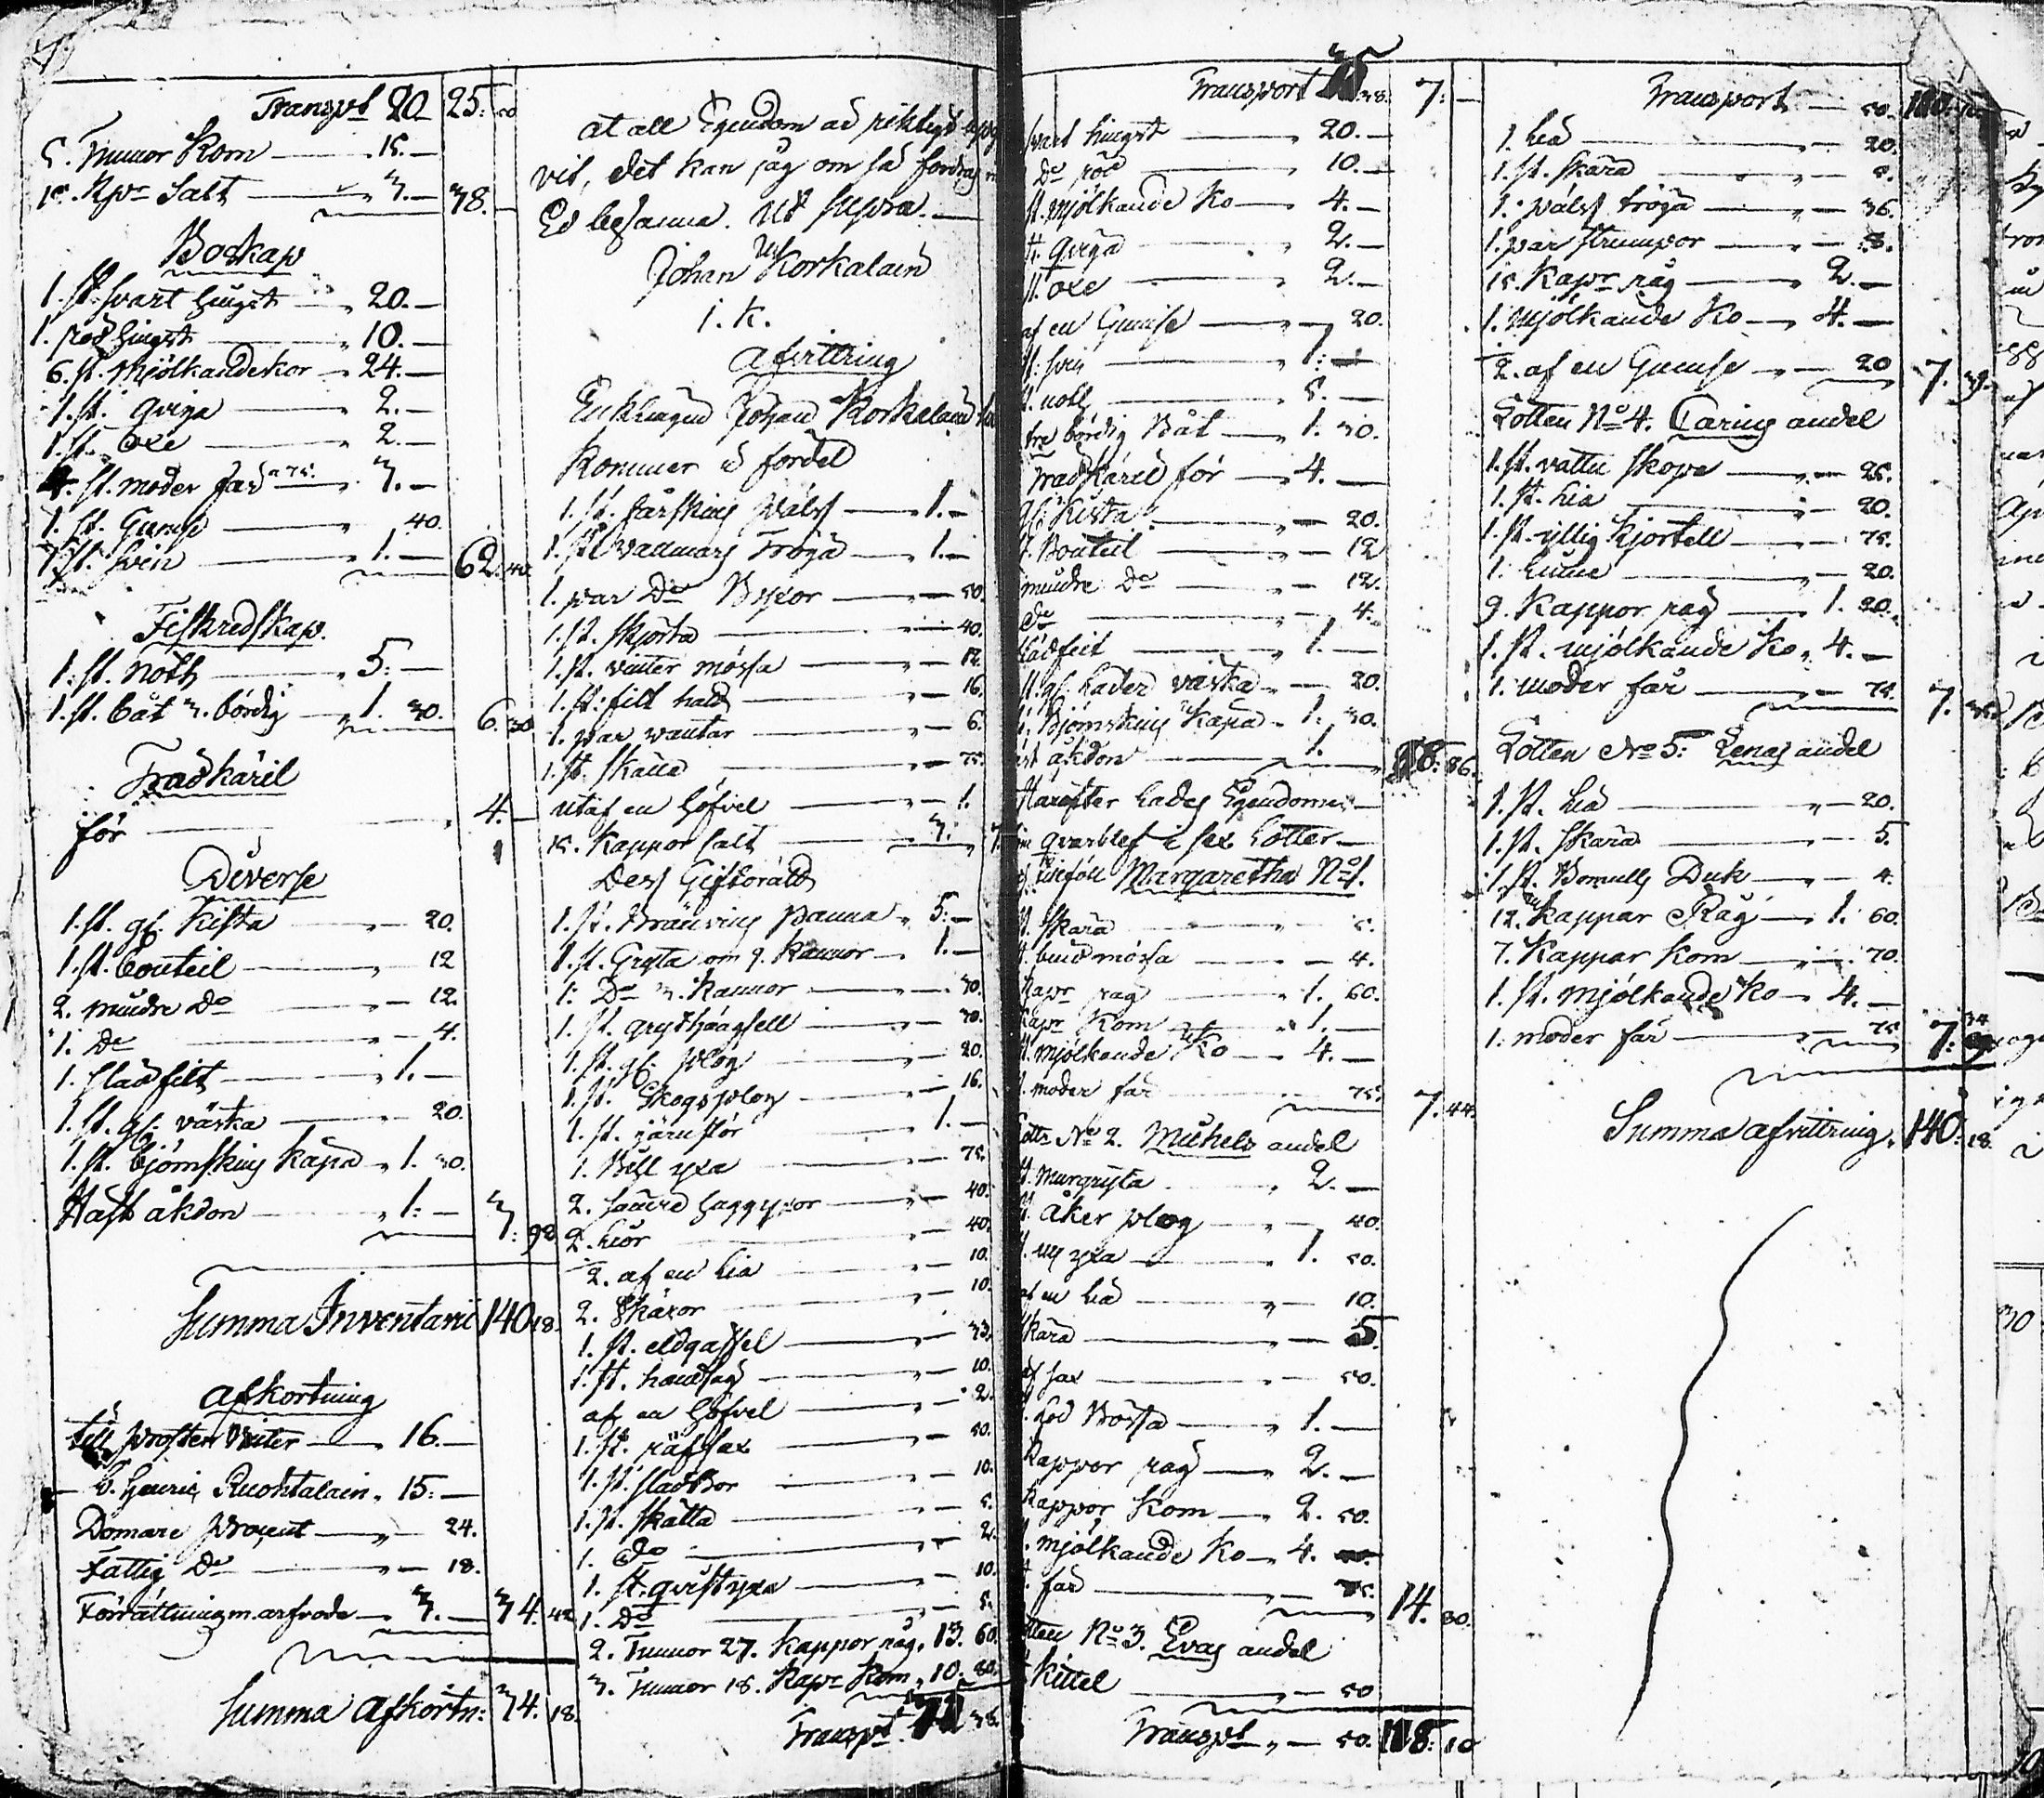 Transpt 20 25: 50
5. Tunnor Korn — 15. —
15. Kpr Salt — 3. — 38. —
Boskap
1. st. svart hingst — 20. —
1. röd hingst — 10. —
6. st. Mjölkande kor — 24. —
1. st. qviga — 2. —
1. st. Oxe — 2. —
4. st. moder får a 75. — 3. —
1. st. Gumse — 40.
1. st. svin — 1. — 62. 40.
Fiskredskap.
1. st. Noth — 5: —
1. st. båt 3. bördig — 1. 30. 6. 30
Trädkäril
för — 4. —
Diverse
1. st. gl. Kista — 20.
1. st. bouteil — 12
2. mindre Do — 12.
1. Do — 4.
1. slädfilt — 1. —
1. st. gl. väska — 20.
1. st. björnskins kapa — 1. 30.
Häst åkdon — 1: — 3: 98
Summa Inventarii 140 18.
Afkortning
till Prosten — 16. —
B. Henric Ruohtalain — 15: —
Domare Procent — 24.
Fattig Do — 18.
Förrättningm. arfvode — 3. — 34. 42
Summa Afkortn: 34. 18.
at all Egendom är riktigt upg
vit, det kan jag om så fordras m
Ed besanna. Ut supra. —
Johan Korkalain
i. k.
Afvittring
Enklingen Johan Korkalain
Kommer i fördel
1. st. fårskins Päls — 1. —
1. st. Vadmars Tröja — 1. —
1. par Do Byxor — 50.
1. st. skjorta — 40.
1. st. vinter mössa — 12.
1. st. filt hatt — 16.
1. par vantar — 6.
1. st. skälla — 75.
utaf en höfvel — 1.
15. Kappor salt — 3.
Dess Giftorätt
1. st. Brännvins Panna — 5: —
1. st. Gryta om 9. Kannor — 1. —
1. Do 3. Kannor — 30.
1. st. — 30.
1. st. gl. plog — 20.
1. st. Skogsplog — 16.
1. st. järnstör — 1. —
1. Bill yxa — 75.
2. huggyxor — 40.
2. liar — 40.
2. af en lia — 10.
2. Skäror — 10.
1. st. eldgaffel — 33.
1. st. handsåg — 10.
af en höfvel — 2.
1. st. räfsax — 50.
1. st. — 10.
1. st. Skätta — 5.
1. Do — 2.
1. st. qvistyxa — 10.
1. Do — 5.
2. Tunnor 27. kappor råg, 13. 60.
3. Tunnor 18. Kapr Korn, 10. 80.
Transpt 38.
Transport 38. 7: —
svart hingst — 20. —
Do röd — 10. —
st. mjölkande Ko — 4. —
st. qviga — 2. —
st. oxe — 2. —
af en Gumse — 20.
st. svin — 1: —
st. noth — 5. —
tre bördig Båt — 1. 30.
Trädkäril för — 4. —
gl. Kista — 20.
st. Bouteil — 12
mindre Do — 12.
Do — 4.
slädfilt — 1. —
st. gl. läder väska — 20.
Björnskins kapa — 1: 30.
åkdon — 1. 86.
Härefter lades Egendomen
qvarblef i sex Lotter —
tilföll Margaretha No 1.
st. skära — 5.
st. bindmössa — 4.
Kapr råg — 1. 60.
Kapr Korn — 1. —
st. mjölkande Ko — 4. —
moder får — 75. 7. 44.
Lott No 2. Mickels andel
st. Murgryta — 2. —
st. åker plog — 40.
st. ny yxa — 1. 50.
af en lia — 10.
skära — 5
räf sax — 50.
st. Lod Bössa — 1. —
Kappor råg — 2. —
Kappor Korn — 2. 50.
st. mjölkande Ko — 4.
får — 75. 14. 30.
Lotten No 3. Evas andel
Kittel — 50
Transpt — 50. 118: 10
Transport — 50. 10.
1. lia — 20.
1. st. skära — 5.
1. päls tröja — 36.
1. par strumpor — 8.
15. Kapr råg — 2. —
1. Mjölkande Ko — 4. —
2. af en Gumse — 20 7. 39.
Lotten No 4. Carins andel
1. st. vattu skopa — 25.
1. st. lia — 20.
1. st. yllig kjortell — 75.
1. — 20.
9. Kappor råg — 1. 20.
1. st. mjölkande Ko — 4. —
1. moder får — 75. 7. 35.
Lotten No 5: Lenas andel
1. st. lia — 20.
1. st. skära — 5.
1. st. Bomulls Duk — 4.
12. Kappar Råg — 1. 60.
7. Kappar Korn — 70.
1. st. mjölkande Ko — 4. —
1. moder får — 75 7: 34
Summa afvittring, 140: 18.